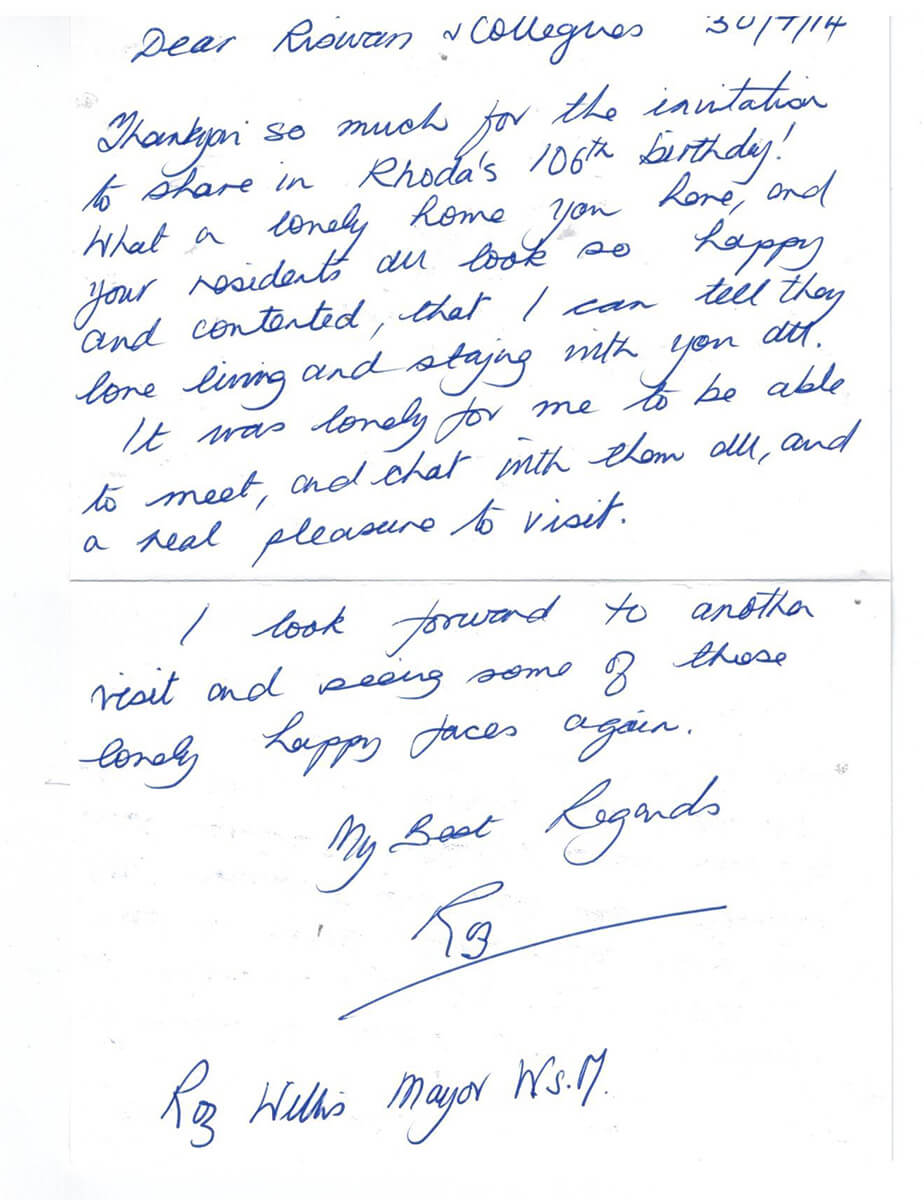 Dear Riswan & Collegues 30/7/14
Thankyou so much for the invitation
to share in Rhoda's 106th birthday!
What a lovely home you have, and
your residents all look so happy
and contented, that I can tell they
love living and staying with you all.
It was lovely for me to be able
to meet, and chat with them all, and
a real pleasure to visit.
I look forward to another
visit and seeing some of those
lovely happy faces again.
My Best Regards
Roz
Roz Willis Mayor W.S.M.